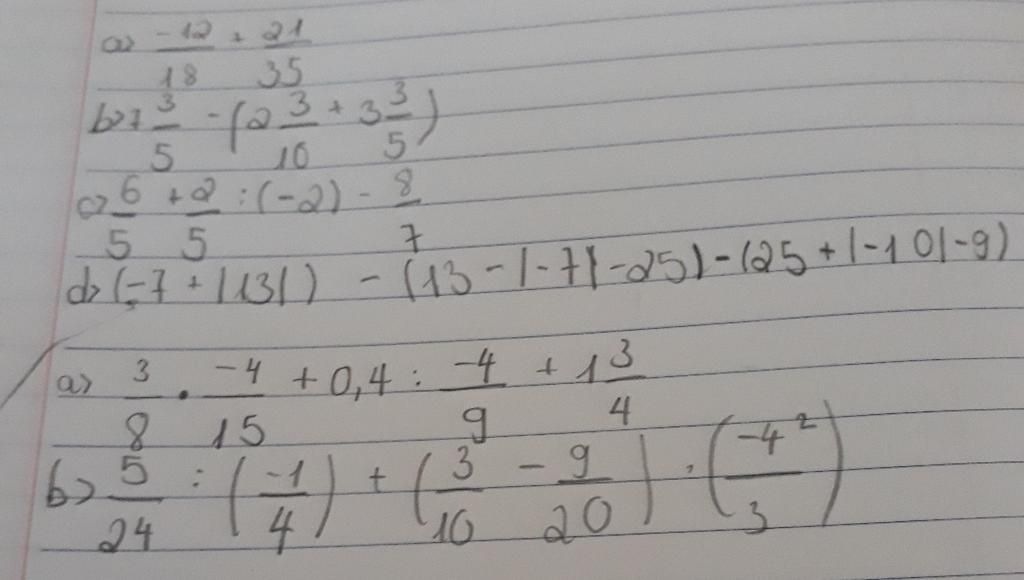 a> -12/18 + 21/35
b> 7 3/5 - (2 3/10 + 3 3/5)
c> 6/5 + 2/5 : (-2) - 8/7
d> (-7 + |13|) - (13 - |-7| - 25) - (25 + |-10| - 9)
a> 3/8 . -4/15 + 0,4 : -4/9 + 1 3/4
b> 5/24 : (-1/4) + (3/10 - 9/20) . (-4²/3)